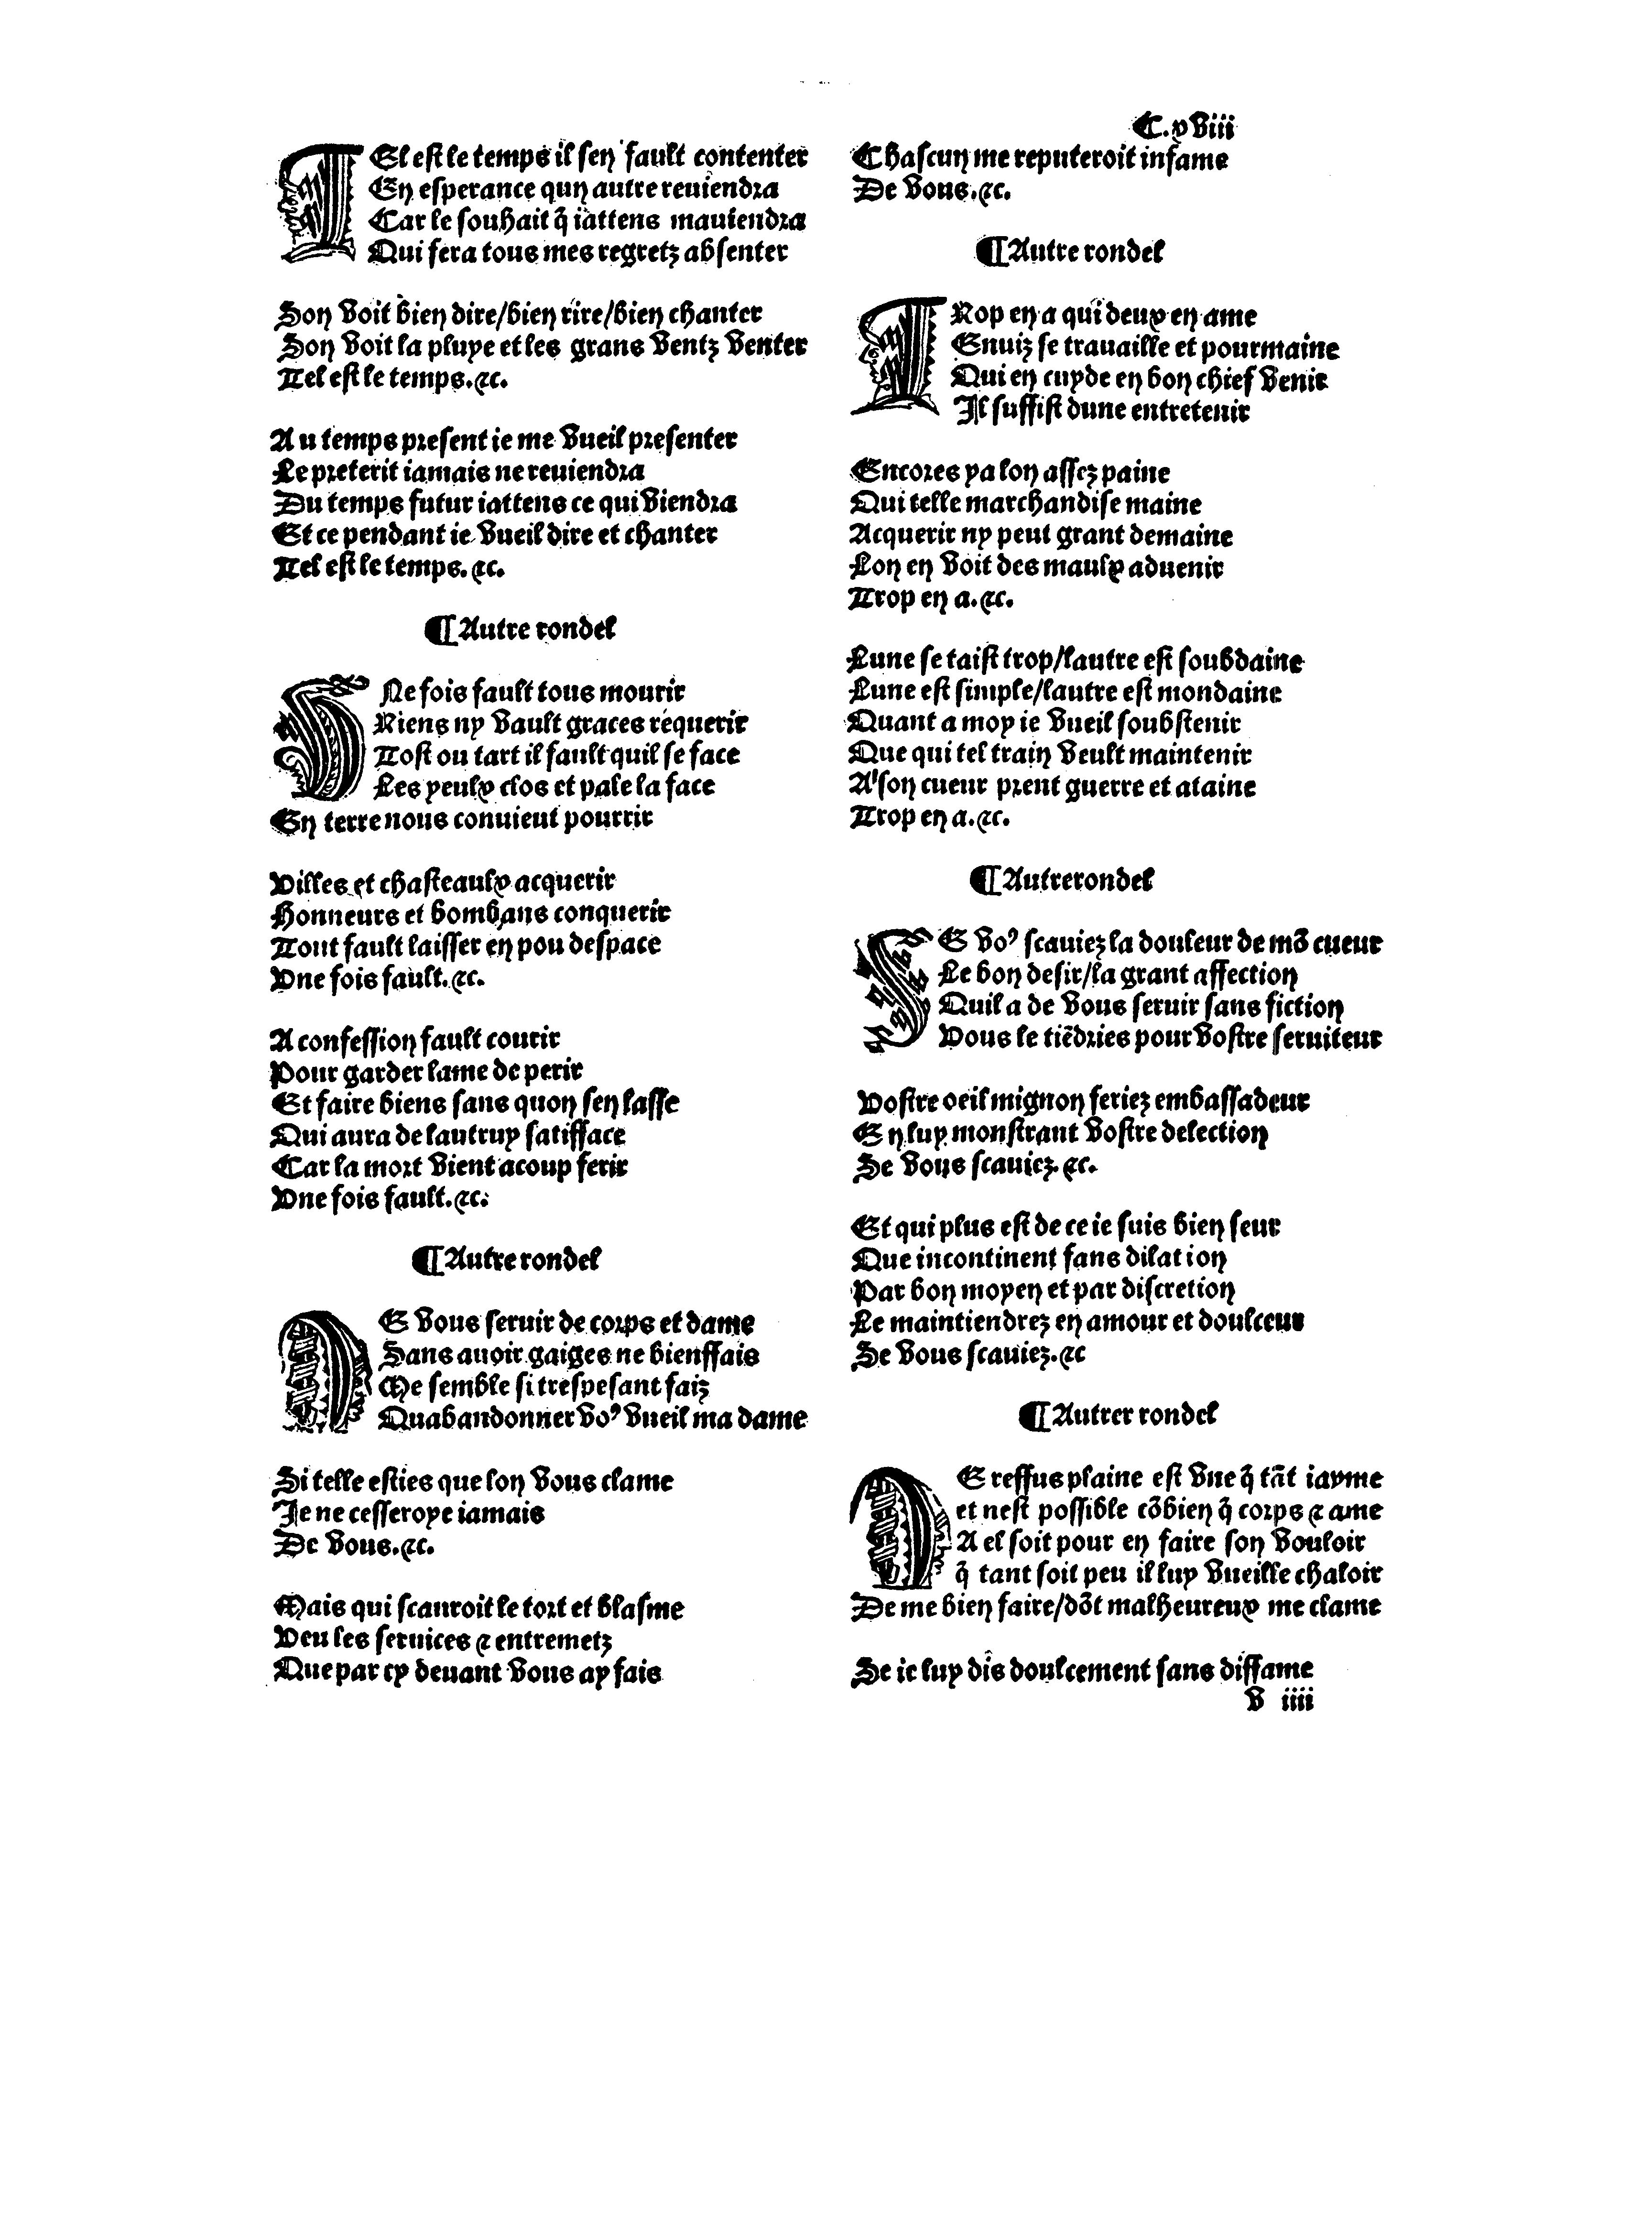 C.xviii
TEl est le temps il sen fault contenter
En esperance qun autre reuiendra
Car le souhait q̃ iattens mauiendra
Qui fera tous mes regretz absenter
Son voit bien dire/bien rire/bien chanter
Son voit la pluye et les grans ventz venter
Tel est le temps.⁊c.
Au temps present ie me vueil presenter
Le preterit iamais ne reuiendra
Du temps futur iattens ce qui viendra
Et ce pendant ie vueil dire et chanter
Tel est le temps.⁊c.
¶Autre rondel
VNe fois fault tous mourir
Riens ny vault graces requerir
Tost ou tart il fault quil se face
Les yeulx clos et pale la face
En terre nous conuient pourrir
Villes et chasteaulx acquerir
Honneurs et bombans conquerir
Tout fault laisser en pou despace
Vne fois fault.⁊c.
A confession fault courir
Pour garder lame de perir
Et faire biens sans quon sen lasse
Qui aura de lautruy satifface
Car la mort vient acoup ferir
Vne fois fault.⁊c.
¶Autre rondel
DE vous seruir de corps et dame
Sans auoir gaiges ne bienffais
Me semble si trespesant faiz
Quabandonner voꝰ vueil ma dame
Si telle esties que lon vous clame
Je ne cesseroye iamais
De vous.⁊c.
Mais qui scauroit le tort et blasme
Veu les seruices ⁊ entremetz
Que par cy deuant vous ay fais
Chascun me reputeroit infame
De vous.⁊c.
¶Autre rondel
TRop en a qui deux en ame
Enuiz se trauaille et pourmaine
Qui en cuyde en bon chief venir
Il suffist dune entretenir
Encores ya lon assez paine
Qui telle marchandise maine
Acquerir ny peut grant demaine
Lon en voit des maulx aduenir
Trop en a.⁊c.
Lune se taist trop/lautre est soubdaine
Lune est simple/lautre est mondaine
Quant a moy ie vueil soubstenir
Que qui tel train veult maintenir
A son cueur prent guerre et ataine
Trop en a.⁊c.
¶Autrerondel
SE voꝰ scauiez la douleur de mõ cueur
Le bon desir/la grant affection
Quil a de vous seruir sans fiction
Vous le tiẽdries pour vostre seruiteur
Vostre oeil mignon feriez embassadeur
En luy monstrant vostre delection
Se vous scauiez.⁊c.
Et qui plus est de ce ie suis bien seur
Que incontinent sans dilation
Par bon moyen et par discretion
Le maintiendrez en amour et doulceur
Se vous scauiez.⁊c
¶Autrer rondel
DE reffus plaine est vne q̃ tãt iayme
et nest possible cõbien q̃ corps ⁊ ame
A el soit pour en faire son vouloir
q̃ tant soit peu il luy vueille chaloir
De me bien faire/dõt malheureux me clame
Se ie luy dis doulcement sans diffame
v iiii